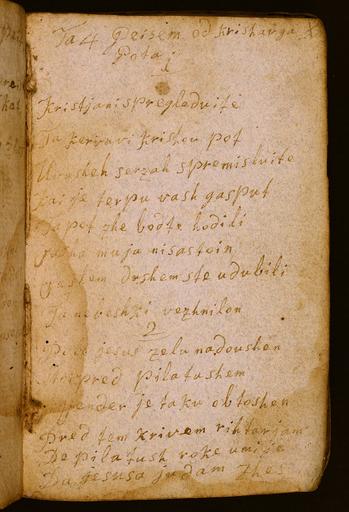 Ta 4 peisem od krishaviga
Pota
1
Kristjani spregleduite
Ta kervavi krishou pot
U vasheh serzah spremisluite
kai je terpu vash gasput
Ta pot zhe bodte hodili
muja nisastoin
drshem ste udubili
Ta nebeshki vezhni lon
2
jesus zelu nadoushen
pred Pilatushem
je taku obtoshen
Pred tem krivem rihtarjam
De Pilatush roke umije
Da jesusa judam zhes